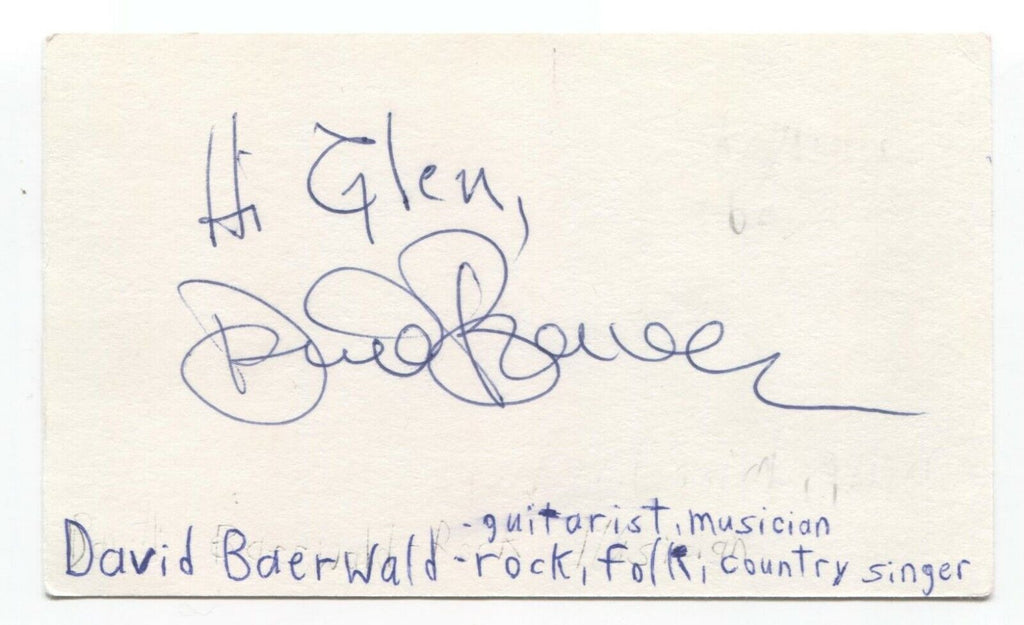 Hi Glen,
David Baerwald
-guitarist, musician
David Baerwald -rock, folk, country singer